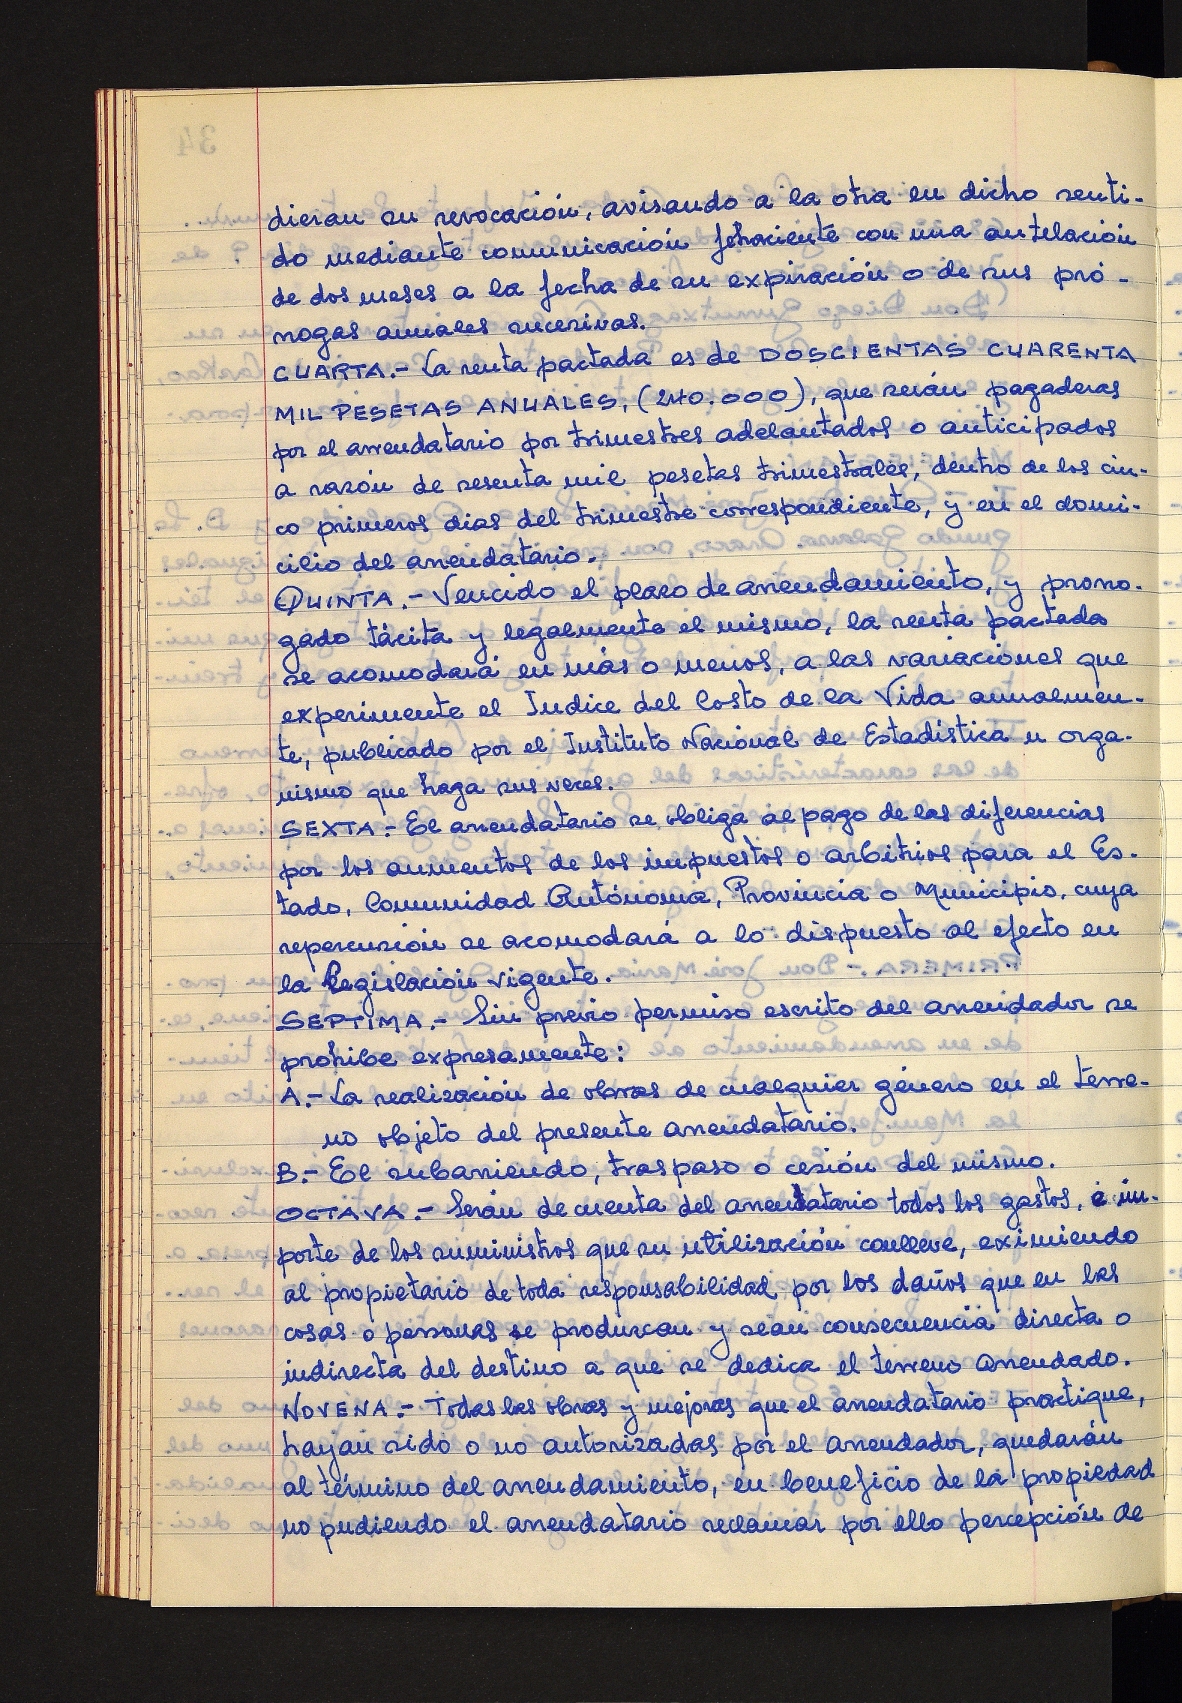 dieran su revocación, avisando a la otra en dicho senti-
do mediante comunicación fehaciente con una antelación
de dos meses a la fecha de su expiración o de sus pró-
rrogas anuales sucesivas.
CUARTA.- La renta pactada es de DOSCIENTAS CUARENTA
MIL PESETAS ANUALES, (240.000), que serán pagaderas
por el arrendatario por trimestres adelantados o anticipados
a razón de sesenta mil pesetas trimestrales, dentro de los cin-
co primeros dias del trimestre correspondiente, y en el domi-
cilio del arrendatario.
QUINTA.- Vencido el plazo de arrendamiento, y prorro-
gado tácita y legalmente el mismo, la renta pactada
se acomodará en más o menos, a las variaciones que
experimente el Indice del Costo de la Vida anualmen-
te, publicado por el Instituto Nacional de Estadística u orga-
nismo que haga sus veces.
SEXTA.- El arrendatario se obliga al pago de las diferencias
por los aumentos de los impuestos o arbitrios para el Es-
tado, Comunidad Autónoma, Provincia o Municipio, cuya
repercusión se acomodará a lo dispuesto al efecto en
la Legislación vigente.
SEPTIMA.- Sin previo permiso escrito del arrendador se
prohibe expresamente:
A.- La realización de obras de cualquier género en el terre-
no objeto del presente arrendatario.
B.- El subarriendo, traspaso o cesión del mismo.
OCTAVA.- Serán de cuenta del arrendatario todos los gastos, e im-
porte de los suministros que su utilización conlleve, eximiendo
al propietario de toda responsabilidad por los daños que en las
cosas o personas se produzcan y sean consecuencia directa o
indirecta del destino a que se dedica el terreno arrendado.
NOVENA.- Todas las obras y mejoras que el arrendatario practique,
hayan sido o no autorizadas por el arrendador, quedarán
al término del arrendamiento, en beneficio de la propiedad
no pudiendo el arrendatario reclamar por ello percepción de